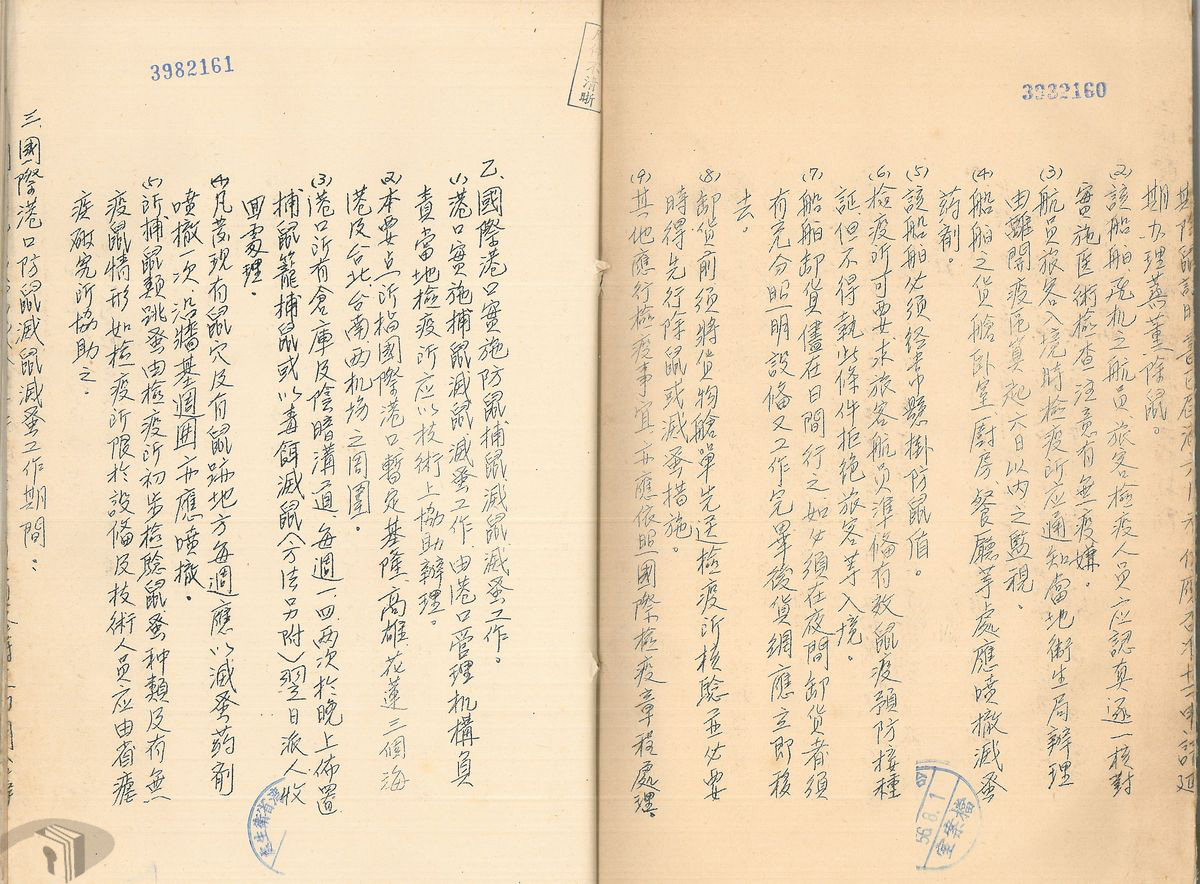 3982160
期办理蒸薰除鼠。
(2)該船舶飛机之航員旅客檢疫人員应認真逐一核對
實施医術檢查注意有無疫嫌。
(3)航員旅客入境時檢疫所应通知當地衛生局辦理
由離開疫區算起六日以内之監視。
(4)船舶之貨艙卧室厨房餐廳等處應噴撒滅蚤
药劑。
(5)該船舶必須終書巾懸掛防鼠值。
(6)檢疫所可要求旅客航員準備有效鼠疫預防接種
証但不得執此條件拒绝旅客等入境。
(7)船舶卸貨儘在日間行之如必須在夜間卸貨者須
有充分照明設備又工作完畢後貨網應立即移
去。
(8)卸貨前須將貨物艙單先送檢疫所核驗並必要
時得先行除鼠或滅蚤措施。
(9)其他應行檢疫事宜亦應依照國際檢疫章程處理。
56.8.1
檔案室
不清晰
3982161
乙、國際港口實施防鼠捕鼠滅鼠滅蚤工作。
(1)港口實施捕鼠滅鼠滅蚤工作由港口管理机構負
責當地檢疫所应以技術上協助辦理。
(2)本要点所指國際港口暫定基隆、高雄、花蓮三個海
港及台北、台南两机場之周圍。
(3)港口所有倉庫及陰暗溝道每週一、四两次於晚上佈置
捕鼠籠捕鼠或以毒餌滅鼠(方法另附)翌日派人收
回處理。
(4)凡发現有鼠穴及有鼠跡地方每週應以滅蚤药劑
噴撒一次沿牆基週囲亦應噴撒。
(5)所捕鼠類跳蚤由檢疫所初步檢驗鼠蚤种類及有無
疫鼠情形如檢疫所限於設備及技術人員应由省瘧
疾研究所協助之。
三、國際港口防鼠滅鼠滅蚤工作期間：